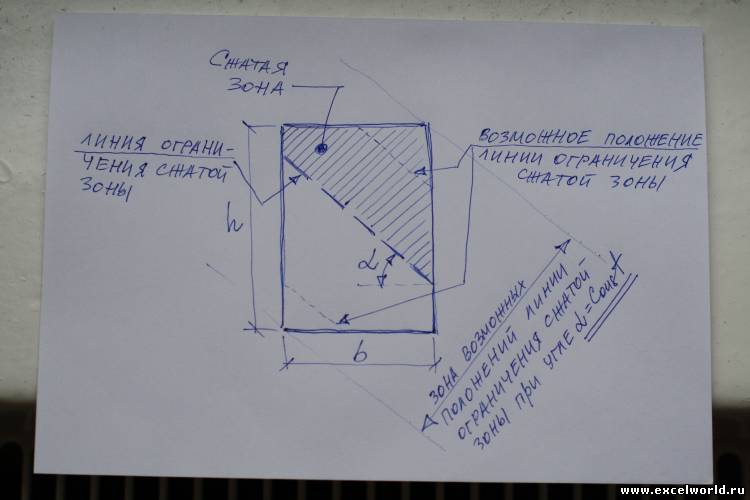 СЖАТАЯ
ЗОНА
ЛИНИЯ ОГРАНИ-
ЧЕНИЯ СЖАТОЙ
ЗОНЫ
ВОЗМОЖНОЕ ПОЛОЖЕНИЕ
ЛИНИИ ОГРАНИЧЕНИЯ
СЖАТОЙ ЗОНЫ
h
α
b
ЗОНА ВОЗМОЖНЫХ
ПОЛОЖЕНИЙ ЛИНИИ
ОГРАНИЧЕНИЯ СЖАТОЙ
ЗОНЫ ПРИ УГЛЕ α=Const
www.excelworld.ru